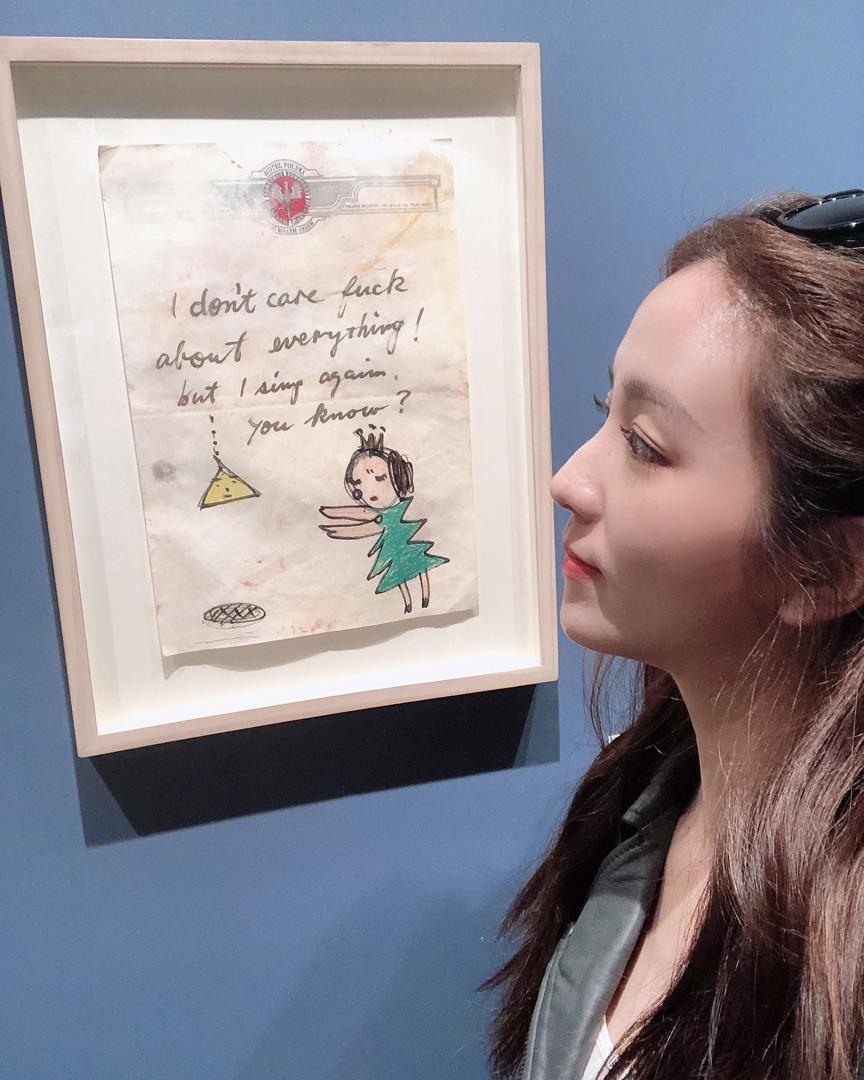 HOTEL POLSKI
I don't care fuck
about everything!
but I sing again.
you know?